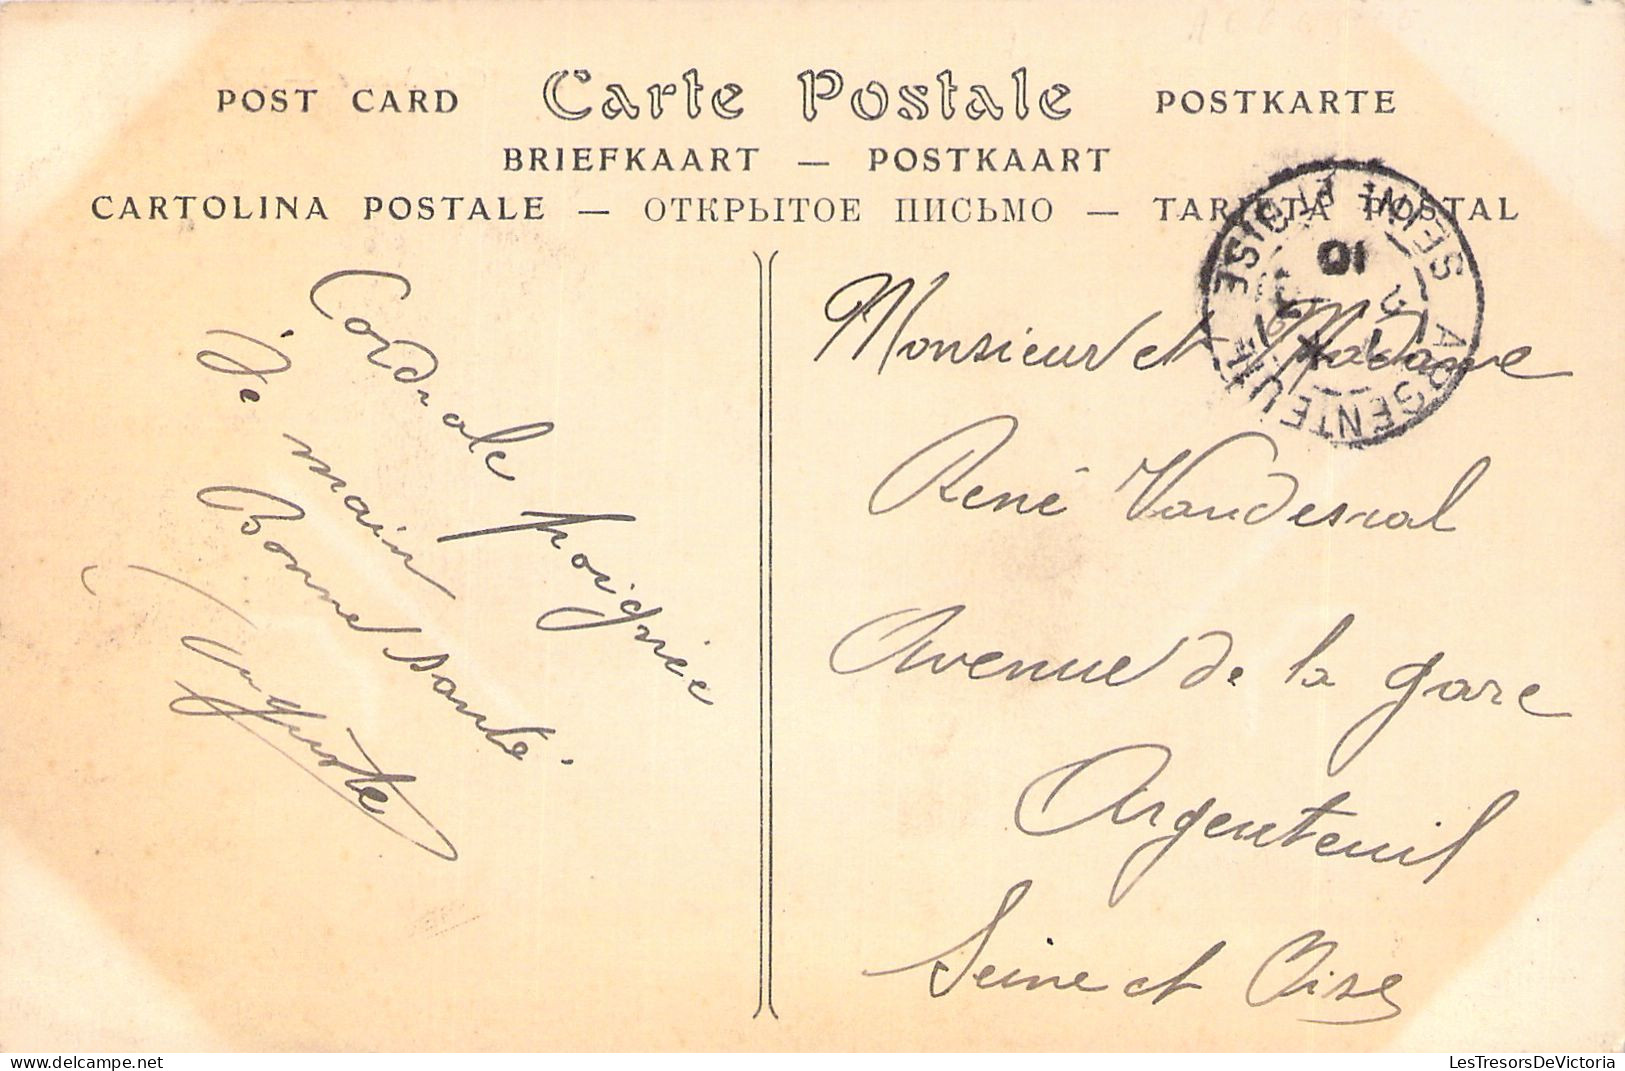 POST CARD Carte Postale POSTKARTE
BRIEFKAART — POSTKAART
CARTOLINA POSTALE — ОТКРЫТОЕ ПИСЬМО — TARJETA POSTAL
ARGENTEUIL
SEINE ET OISE
10
Cordiale poignée
de main
Bonne santé.
Monsieur et Madame
René Vandesnal
Avenue de la gare
Argenteuil
Seine et Oise
LesTresorsDeVictoria